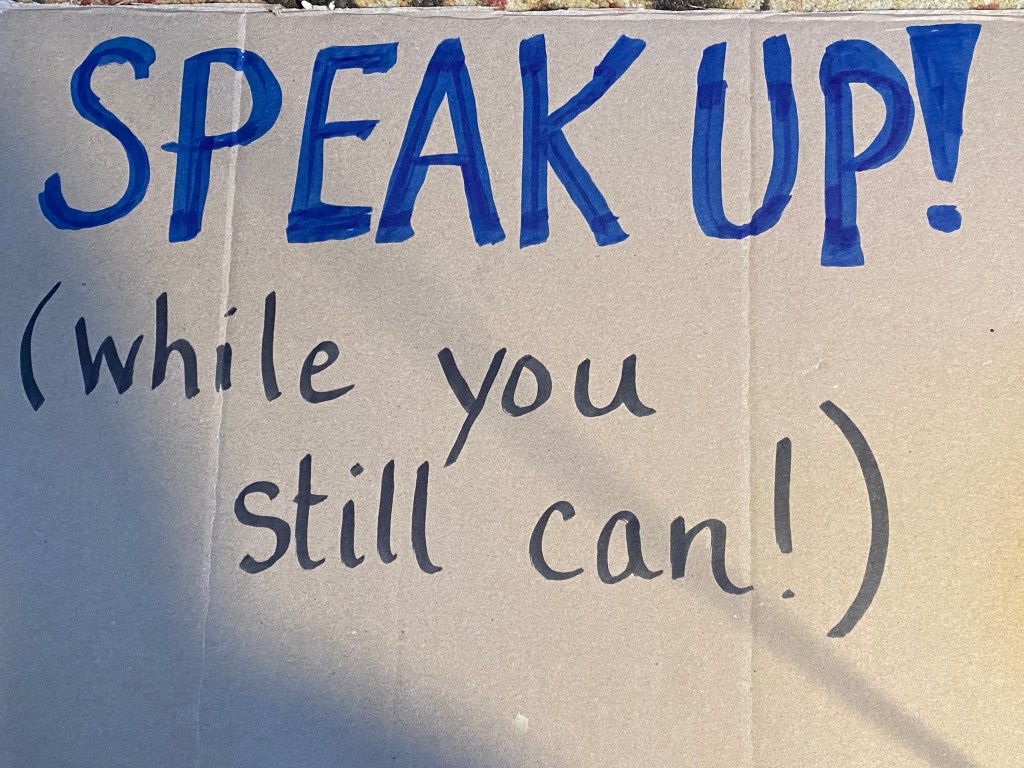 SPEAK UP!
(while you
still can!)